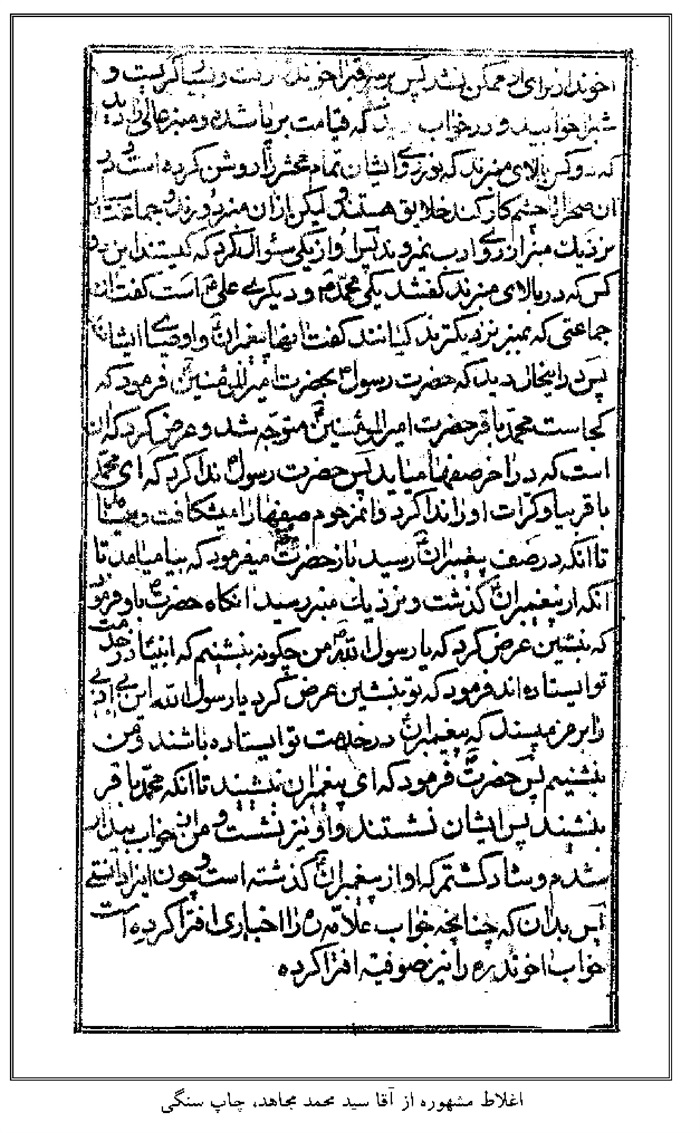 اخوند از برای او ممکن نشد پس بر سر قبر اخوند رفت و بسیار گریست و
شب را خوابید و در خواب دید که قیامت بر پا شده و منبر عالی را دید
که دو کس بالای منبرند که نور روی ایشان تمام محشر را روشن کرده است و در
ان صحرا تا چشم کار کند خلایق هستند و لیکن از ان منبر دورند و جماعتی
نزدیك منبر از روی ادب نمیروند پس او از یکی سئوال کرد که کیستند این دو
کس که در بالای منبرند گفتند یکی محمد ص و دیگری علی ع است گفت ان
جماعتی که بمنبر نزدیکترند کیانند گفت اینها پیغمبران و اوصیای ایشان
پس در اینحال دید که حضرت رسول ص بحضرت امیرالمؤمنین ع فرمود که
کجاست محمد باقر حضرت امیرالمؤمنین ع متوجه شد و عرض کرد که ان
است که در اخر صفها میاید پس حضرت رسول ص ندا کرد که ای محمد
باقر بیا و کرات او را ندا کرد و انمرحوم صفها را میشکافت و میامد
تا انکه در صف پیغمبران رسید باز حضرت ص میفرمود که بیا میامد تا
انکه از پیغمبران گذشت و نزدیك منبر رسید انکاه حضرت ص باو فرمود
که بنشین عرض کرد که یا رسول الله ص من چکونه بنشینم که انبیا در خدمت
تو ایستاده اند فرمود که تو بنشین عرض کرد یا رسول الله این بی ادبی
را بر من مپسند که پیغمبران در خدمت تو ایستاده باشند و من
بنشینم پس حضرت ص فرمود که ای پیغمبران بنشینید تا انکه محمد باقر
بنشیند پس ایشان نشستند و او نیز نشست و من از خواب بیدار
شدم و شاد گشتم که او از پیغمبران گذشته است و چون اینرا دانستی
پس بدان که چنانچه خواب علامه ره را اخباری افترا کرده است
خواب اخوند ره را نیز صوفیه افترا کرده
اغلاط مشهوره از آقا سید محمد مجاهد، چاپ سنگی